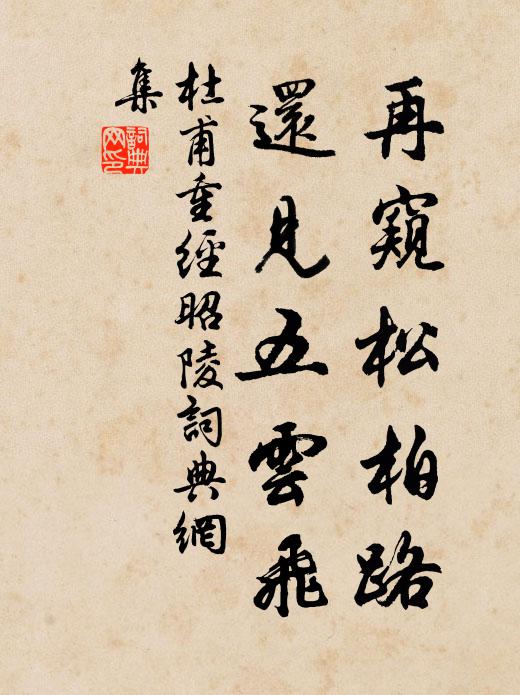 再窺松柏路
還見五雲飛
杜甫重經昭陵詞典網
集
詞典
网印